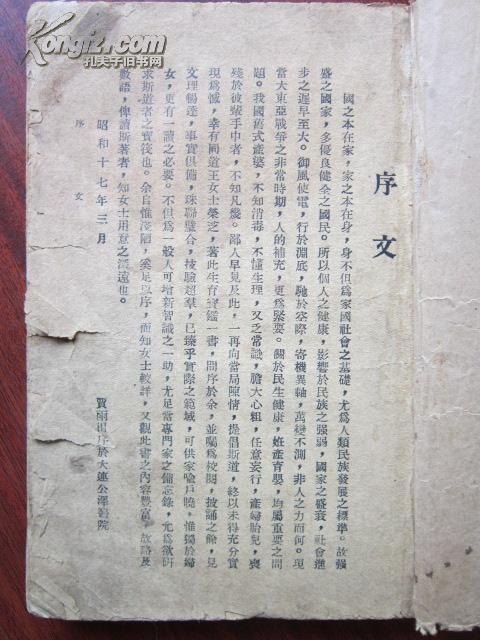 Kongfz.com
孔夫子旧书网
序文
國之本在家，家之本在身，身不但爲家國社會之基礎，尤爲人類民族發展之標準。故强
盛之國家，多優良健全之國民。所以個人之健康，影響於民族之强弱，國家之盛衰，社會進
步之遲早至大。御風使電，行於淵底，馳於空際，寄機異軸，萬變不測，非人之力而何。現
當大東亞戰爭之非常時期，人的補充，更爲緊要。關於民生健康，姙產育嬰，均屬重要之問
題。我國舊式產婆，不知消毒，不懂生理，又乏常識，膽大心粗，任意妄行，產婦胎兒，喪
殘於彼輩手中者，不知凡幾。鄙人早見及此，一再向當局陳情，提倡斯道，終以未得充分實
現爲憾，幸有同道王女士榮芝，著此生育寶鑑一書，問序於余，並囑爲校閱，披誦之餘，見
文理暢達，事實俱備，珠聯璧合，技驗超羣，已臻乎實際之範域，可供家喻戶曉，惟獨於婦
女，更有一讀之必要。不但爲一般人可增新智識之一助，尤足當專門家之備忘錄，尤爲欲研
求斯道者之寶筏也。余自惟淺陋，奚足以序，而知女士較詳，又觀此書之內容豐富，故略及
數語，俾讀斯著者，知女士用意之深遠也。
昭和十七年三月
賈雨田序於大連公澤醫院
序文